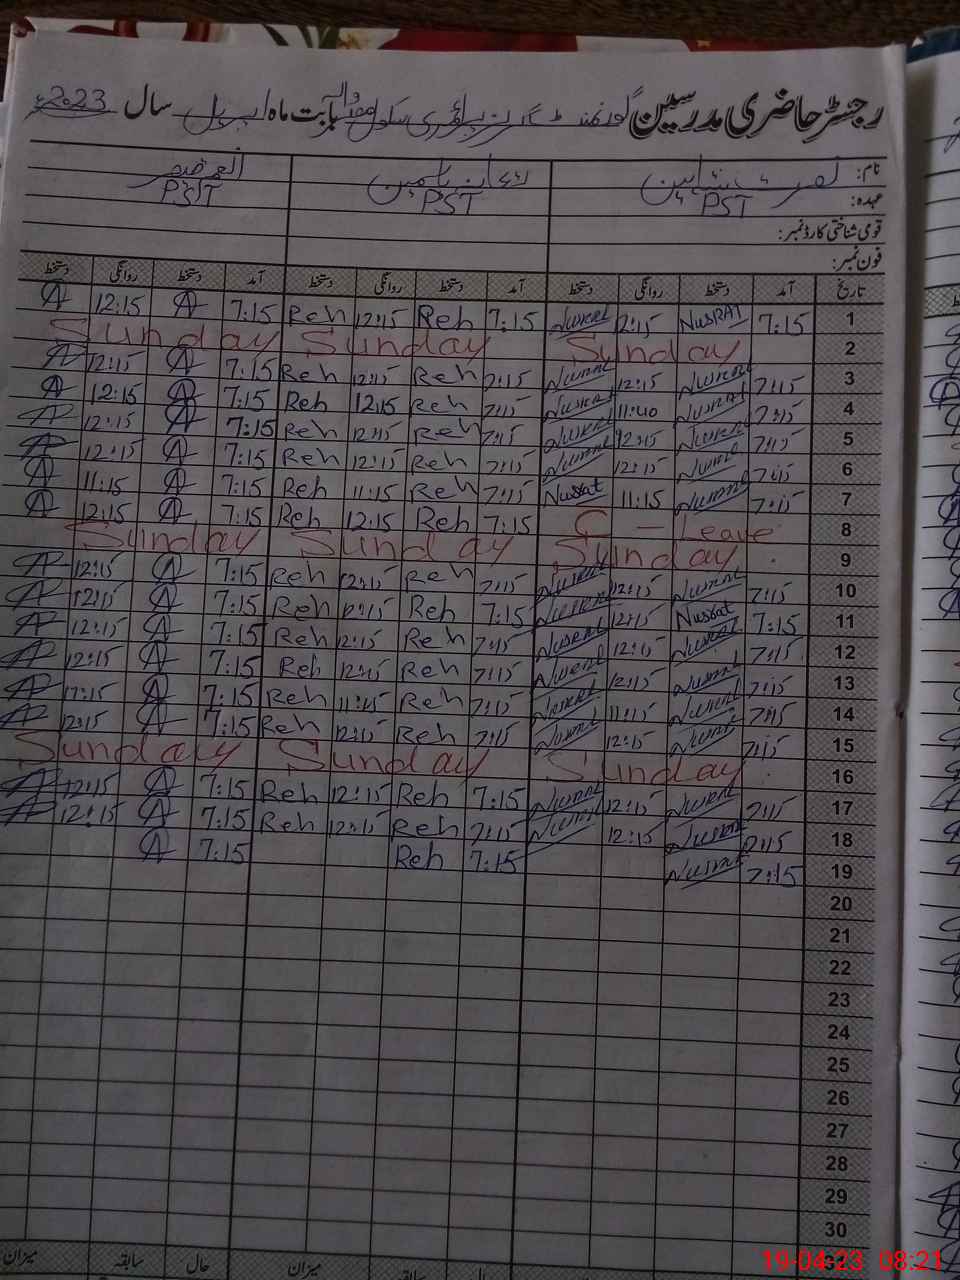 رجسٹر حاضری مدرسین گورنمنٹ گرلز پرائمری سکول بابت ماہ اپریل سال 2023ء
نام: نصرت شاہین
عہدہ: PST PST PST
قومی شناختی کارڈ نمبر:
فون نمبر:
تاریخ آمد دستخط روانگی دستخط آمد دستخط روانگی دستخط آمد دستخط روانگی دستخط
1 7:15 NUSRAT 12:15 Nusrat 7:15 Reh 12:15 Reh 7:15 A 12:15 A
2 Sunday Sunday Sunday
3 7:15 Nusrat 12:15 Nusrat 7:15 Reh 12:15 Reh 7:15 A 12:15 A
4 7:15 Nusrat 11:40 Nusrat 7:15 Reh 12:15 Reh 7:15 A 12:15 A
5 7:15 Nusrat 12:15 Nusrat 7:15 Reh 12:15 Reh 7:15 A 12:15 A
6 7:15 Nusrat 12:15 Nusrat 7:15 Reh 12:15 Reh 7:15 A 12:15 A
7 7:15 Nusrat 11:15 Nusrat 7:15 Reh 11:15 Reh 7:15 A 11:15 A
8 C - Leave 7:15 Reh 12:15 Reh 7:15 A 12:15 A
9 Sunday Sunday Sunday
10 7:15 Nusrat 12:15 Nusrat 7:15 Reh 12:15 Reh 7:15 A 12:15 A
11 7:15 Nusrat 12:15 Nusrat 7:15 Reh 12:15 Reh 7:15 A 12:15 A
12 7:15 Nusrat 12:15 Nusrat 7:15 Reh 12:15 Reh 7:15 A 12:15 A
13 7:15 Nusrat 12:15 Nusrat 7:15 Reh 12:15 Reh 7:15 A 12:15 A
14 7:15 Nusrat 11:15 Nusrat 7:15 Reh 11:15 Reh 7:15 A 11:15 A
15 7:15 Nusrat 12:15 Nusrat 7:15 Reh 12:15 Reh 7:15 A 12:15 A
16 Sunday Sunday Sunday
17 7:15 Nusrat 12:15 Nusrat 7:15 Reh 12:15 Reh 7:15 A 12:15 A
18 7:15 Nusrat 12:15 Nusrat 7:15 Reh 12:15 Reh 7:15 A 12:15 A
19 7:15 Nusrat 7:15 Reh 7:15 A
20
21
22
23
24
25
26
27
28
29
30
حال سابقہ میزان
میزان
19-04-23 08:21